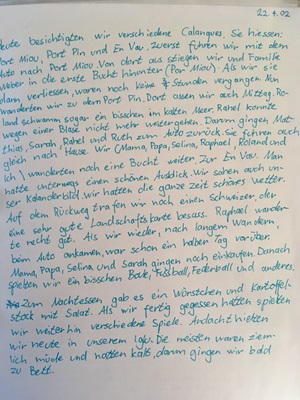 22.4.02
Heute besichtigten wir verschiedene Calanques. Sie hiessen:
Port Miou, Port Pin und En Vau. Zuerst fuhren wir mit dem
Auto nach Port Miou. Von dort aus stiegen wir und Familie
Weber in die erste Bucht hinunter (Port Miou). Als wir sie
dann verliessen, waren noch keine ¾ Stunden vergangen. Nun
wanderten wir zu dem Port Pin. Dort assen wir auch Mittag. Ro-
land schwamm sogar ein bisschen im kalten Meer. Rahel konnte
wegen einer Blase nicht mehr weitergehen. Darum gingen Mat-
thias, Sarah, Rahel und Ruth zum Auto zurück. Sie fuhren auch
gleich nach Hause. Wir (Mama, Papa, Selina, Raphael, Roland und
ich) wanderten noch eine Bucht weiter. Zur En Vau. Man
hatte unterwegs einen schönen Ausblick. Wir sahen auch un-
ser Kalenderbild. Wir hatten die ganze Zeit schönes Wetter.
Auf dem Rückweg trafen wir noch einen Schweizer, der
eine sehr gute Landschaftskarte besass. Raphael wander-
te recht gut. Als wir wieder, nach langem Wandern,
beim Auto ankamen, war schon ein halber Tag vorüber.
Mama, Papa, Selina und Sarah gingen noch einkaufen. Danach
spielten wir ein bisschen Boule, Fussball, Federball und anderes.
Zum Nachtessen gab es ein Würstchen und Kartoffel-
stock mit Salat. Als wir fertig gegessen hatten spielten
wir weiterhin verschiedene Spiele. Andacht hielten
wir heute in unserem Iglu. Die meisten waren ziem-
lich müde und hatten kalt, darum gingen wir bald
zu Bett.